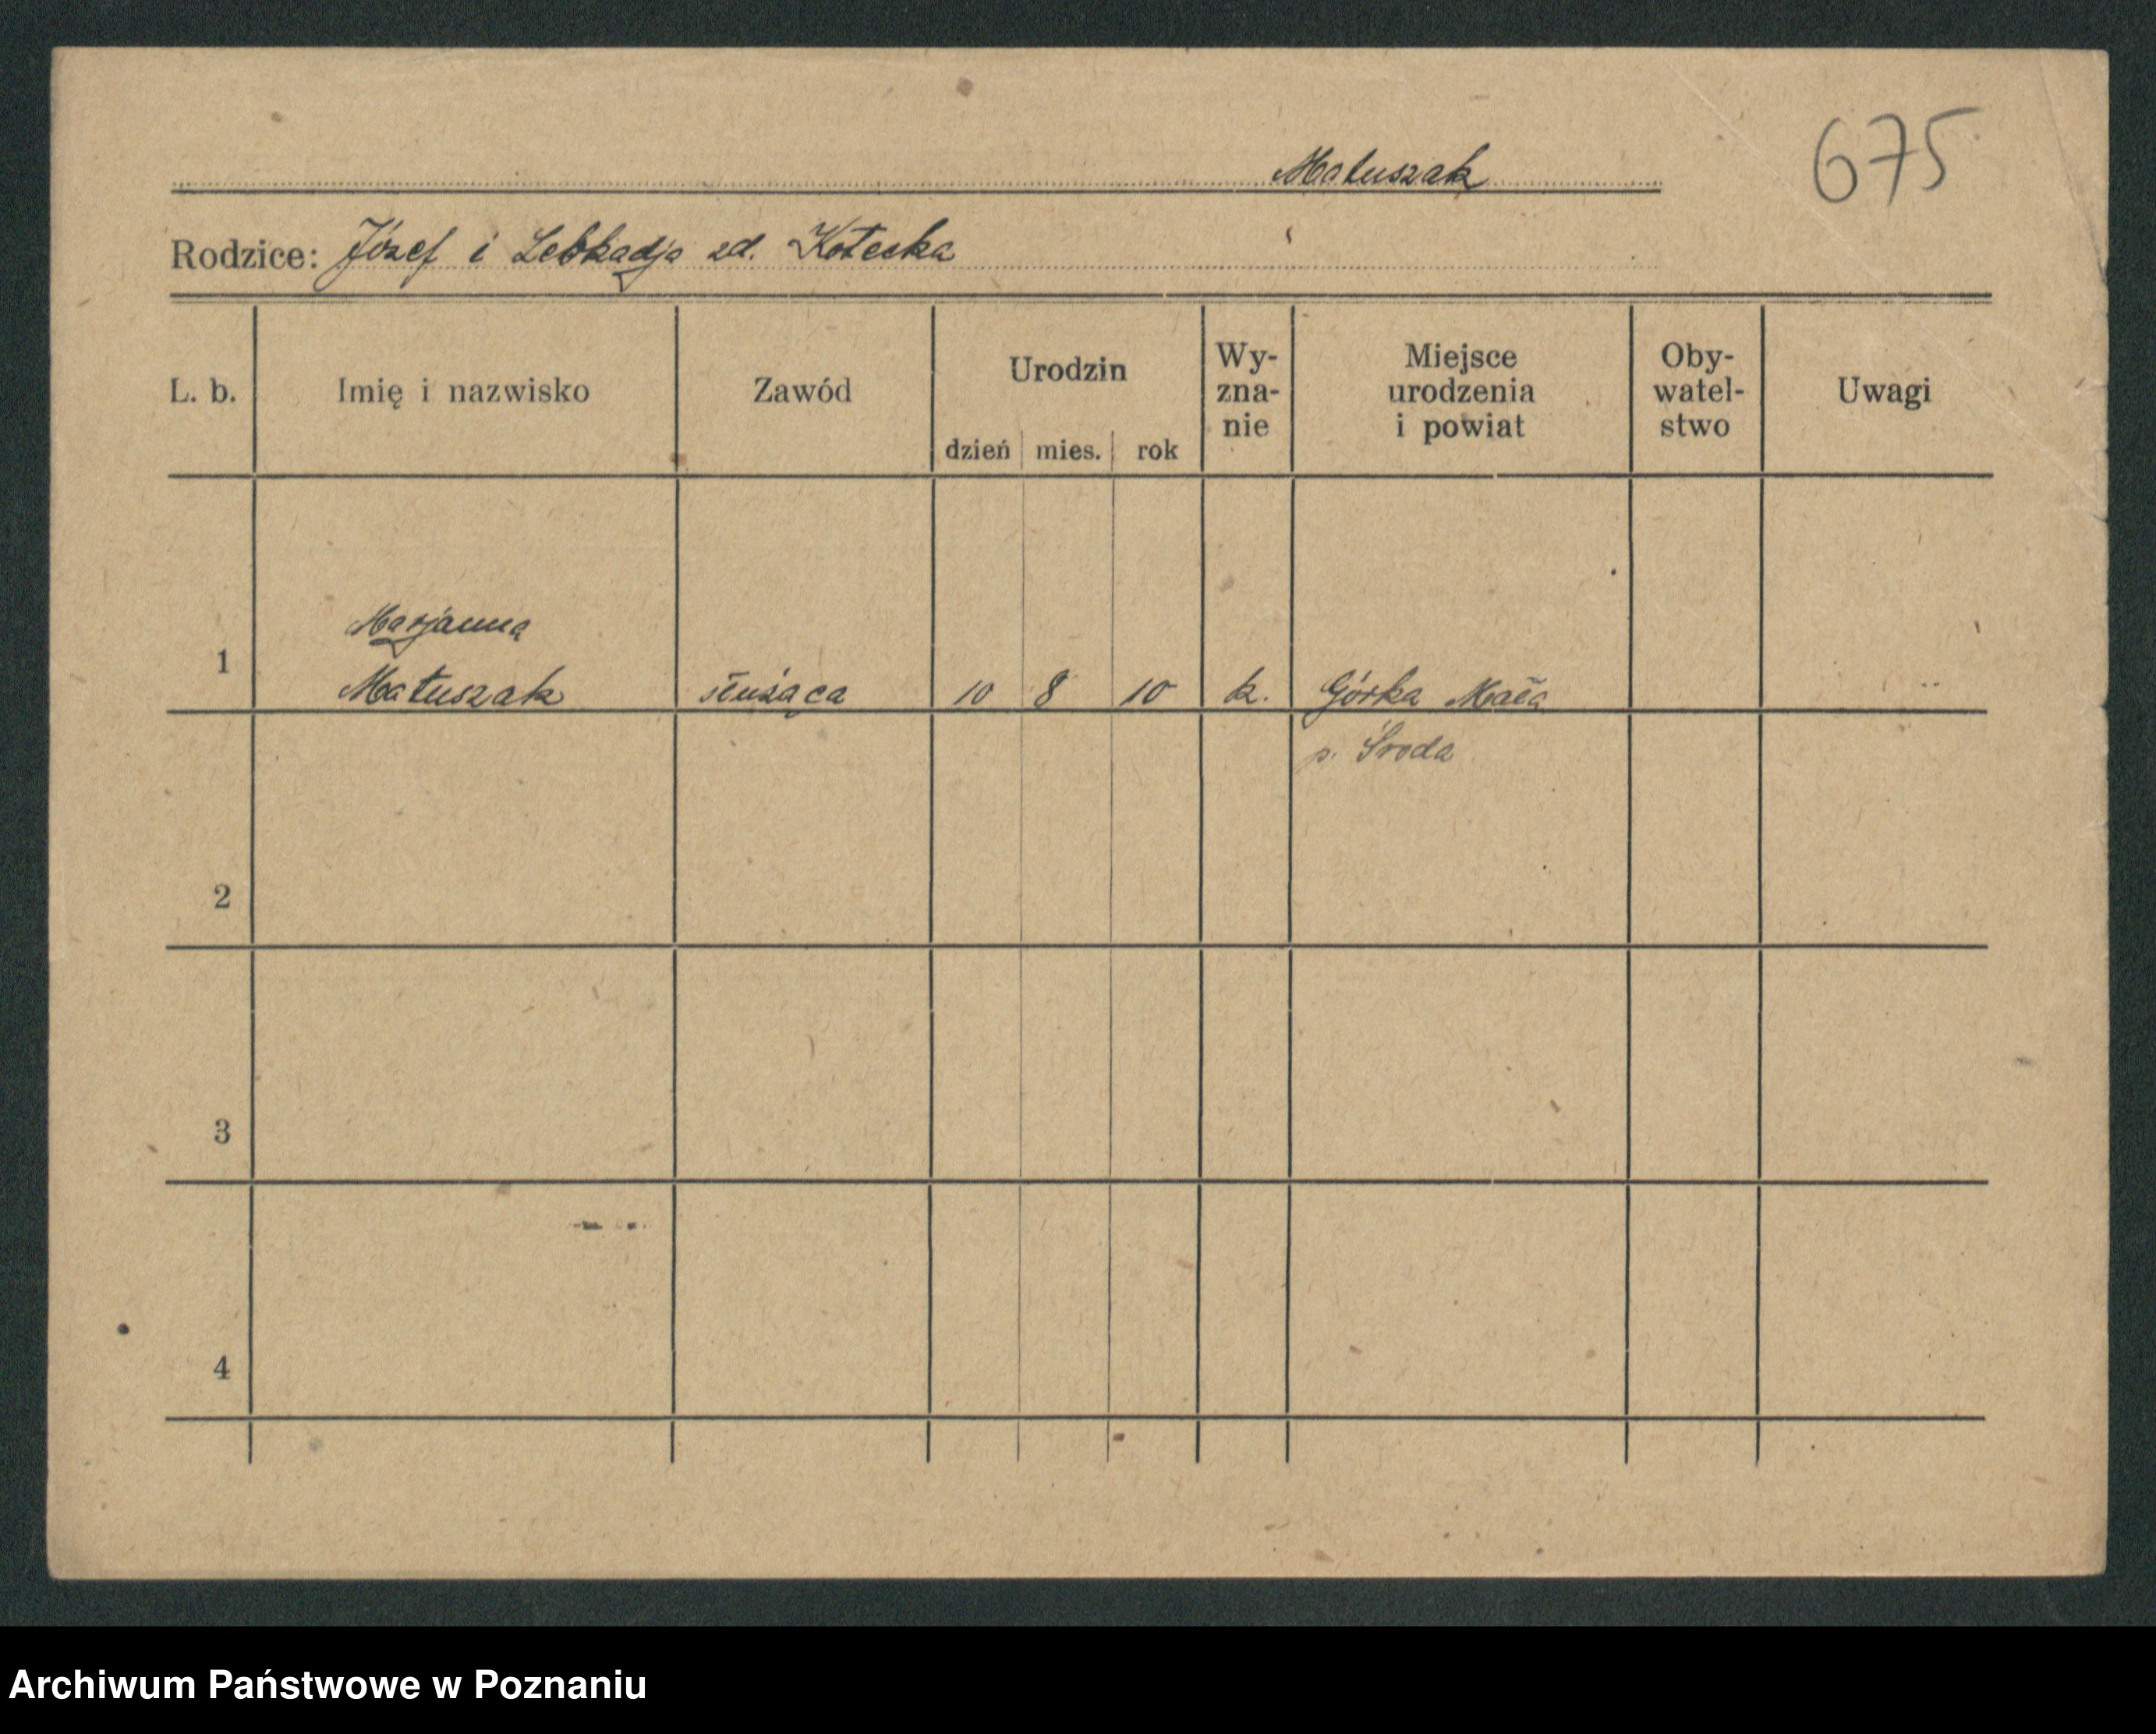 675
Matuszak
Rodzice: Józef i Leokadja zd. Kotecka
L. b. Imię i nazwisko Zawód Urodzin dzień mies. rok Wy-zna-nie Miejsce urodzenia i powiat Oby-watel-stwo Uwagi
Marjanna
1 Matuszak służąca 10 8 10 k. Górka Mała
p. Środa
2
3
4
Archiwum Państwowe w Poznaniu